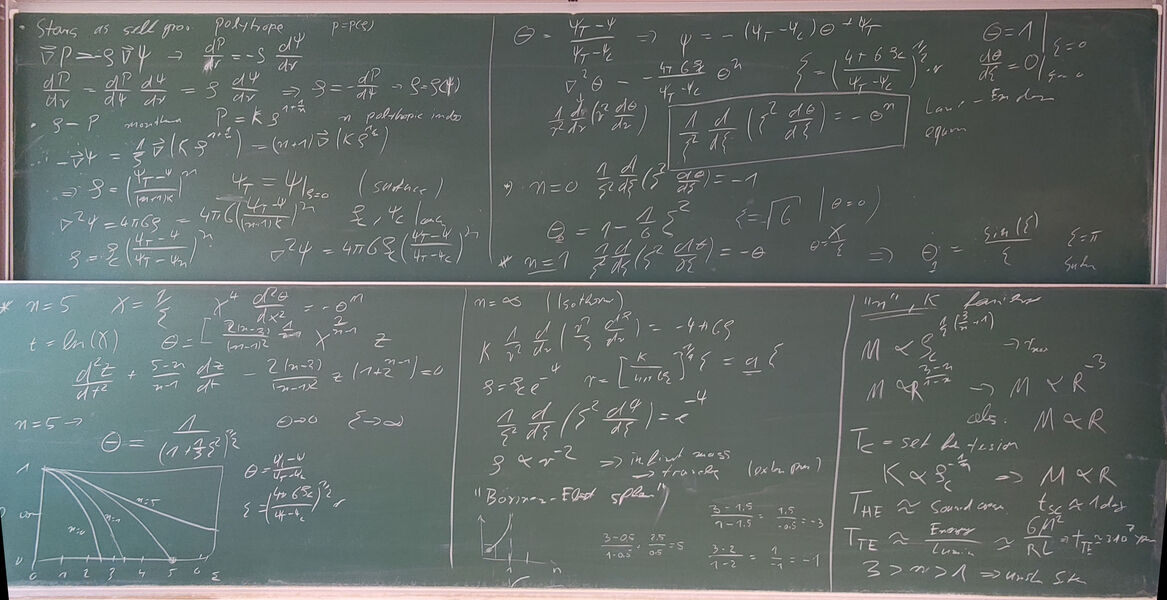 • Stars as self grav polytrope P=P(ρ)
∇⃗P = -ρ∇⃗Ψ ⇒ dP/dr = -ρ dΨ/dr
dP/dr = dP/dΨ dΨ/dr = ρ dΨ/dr ⇒ ρ = -dP/dΨ → ρ=ρ(Ψ)
• ρ-P P = Kρ^(n+1/n) n polytropic index
-∇⃗Ψ = 1/ρ ∇⃗(Kρ^(n+1/n)) = (n+1)∇⃗(Kρ^(1/n))
⇒ ρ = (Ψ_T-Ψ/(n+1)K)^n Ψ_T = Ψ|_ρ=0 (surface)
∇²Ψ = 4πGρ = 4πG(Ψ_T-Ψ/(n+1)K)^n ρ_c, Ψ_c
ρ = ρ_c(Ψ_T-Ψ/Ψ_T-Ψ_c)^n ∇²Ψ = 4πGρ_c(Ψ_T-Ψ/Ψ_T-Ψ_c)^n
Θ = Ψ_T-Ψ/Ψ_T-Ψ_c ⇒ Ψ = -(Ψ_T-Ψ_c)Θ+Ψ_T Θ=1|ξ=0
∇²Θ = -4πGρ_c/Ψ_T-Ψ_c Θ^n ξ = (4πGρ_c/Ψ_T-Ψ_c)^½ · r dΘ/dξ = 0|ξ=0
1/r² d/dr(r² dΘ/dr) 1/ξ² d/dξ(ξ² dΘ/dξ) = -Θ^n Lane-Emden
equation
* n=0 1/ξ² d/dξ(ξ² dΘ/dξ) = -1
Θ_0 = 1 - 1/6 ξ² ξ=√6 | Θ=0)
* n=1 1/ξ² d/dξ(ξ² dΘ/dξ) = -Θ Θ=X/ξ ⇒ Θ_1 = sin(ξ)/ξ ξ=π
* n=5 X = 1/ξ X⁴ d²Θ/dx² = -Θ^n
t = ln(X) Θ = [2(n-3)/(n-1)²]^(1/n-1) X^(2/n-1) z
d²z/dt² + 5-n/n-1 dz/dt - 2(n-3)/(n-1)² z(1+z^(n-1)) = 0
n=5 → Θ→0 ξ→∞
Θ = 1/(1+⅓ξ²)^½
Θ = Ψ_T-Ψ/Ψ_T-Ψ_c
ξ = (4πGρ_c/Ψ_T-Ψ_c)^½ r
1
n=0 n=1 n=5
0
0 1 2 3 4 5 6 ξ
n=∞ (Isotherm)
K 1/r² d/dr(r² dlnρ/dr) = -4πGρ
ρ = ρ_c e^(-Ψ) r = [K/4πGρ_c]^½ ξ = a ξ
1/ξ² d/dξ(ξ² dΨ/dξ) = e^(-Ψ)
ρ ∝ r^(-2) ⇒ infinit mass
→ truncate
"Bonnor-Ebert sphere"
1 n
3-0,5/1-0,5 = 2,5/0,5 = 5
3-1,5/1-1,5 = 1,5/-0,5 = -3
3-2/1-2 = 1/-1 = -1
"n", K
M ∝ ρ_c^(½(3/n-1))
M ∝ R^(3-n/1-n) → M ∝ R^(-3)
obs. M ∝ R
T_c = set by fusion
K ∝ ρ_c^(-1/n) ⇒ M ∝ R
T_HE ≈ sound cross t_sc ≈ 1 day
T_TE ≈ Energy/Lumin ≈ GM²/RL ⇒ t_TE ≈ 3·10⁷
3 > n > 1 ⇒